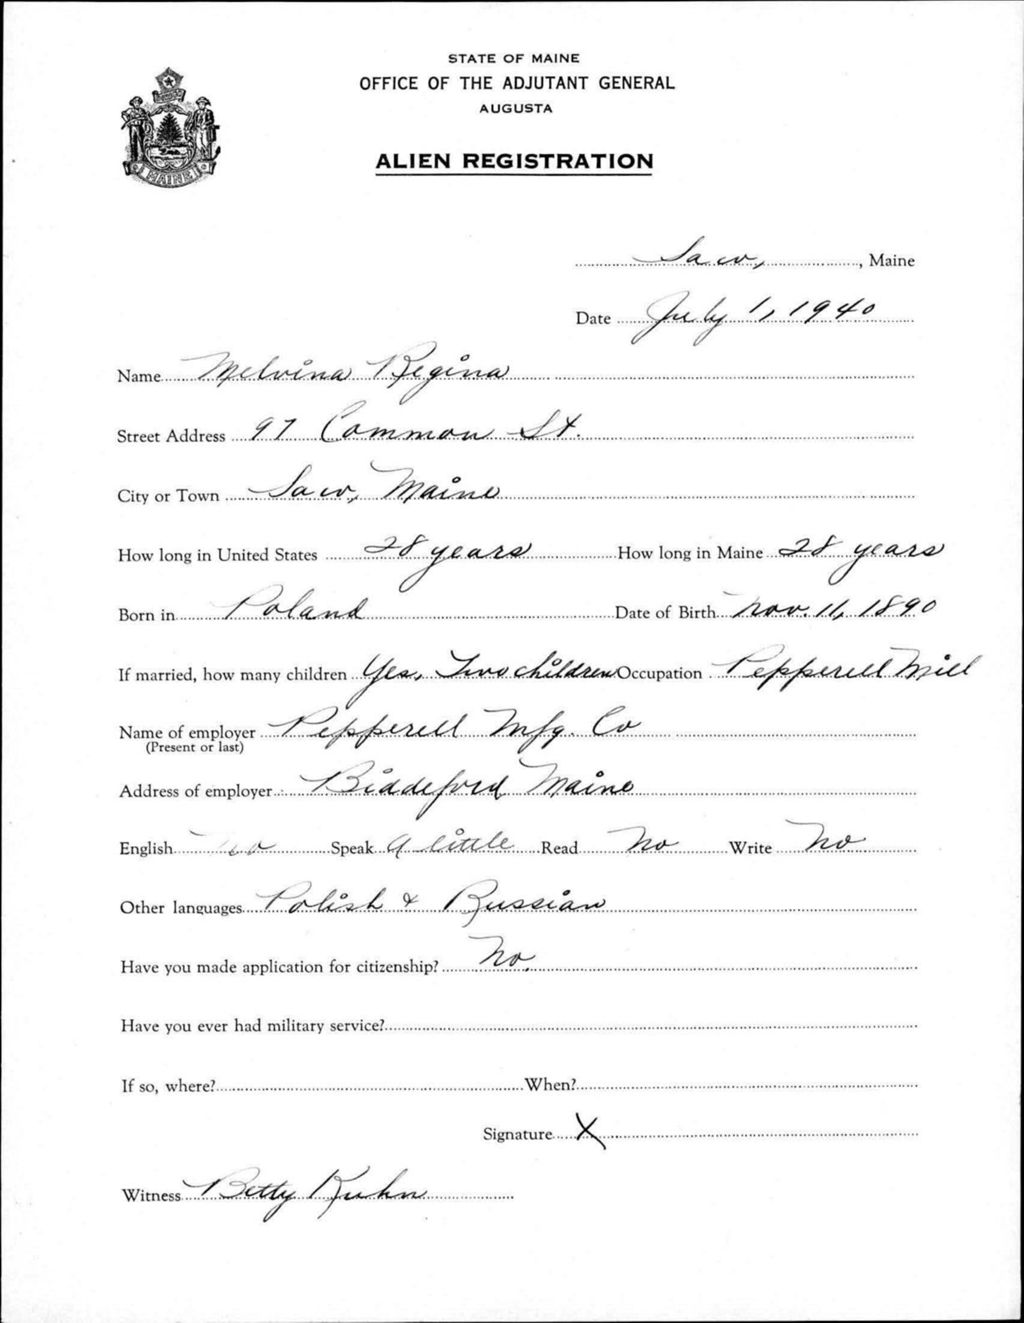 STATE OF MAINE
OFFICE OF THE ADJUTANT GENERAL
AUGUSTA
ALIEN REGISTRATION
MAINE
Saco, , Maine
Date July 1, 1940
Name Melvina Regina
Street Address 97 Common St.
City or Town Saco, Maine
How long in United States 28 years How long in Maine 28 years
Born in Poland Date of Birth Nov. 11, 1890
If married, how many children Yes, Two children Occupation Pepperell Mill
Name of employer Pepperell Mfg. Co
(Present or last)
Address of employer Biddeford Maine
English No Speak A little Read No Write No
Other languages Polish & Russian
Have you made application for citizenship? No.
Have you ever had military service?
If so, where? When?
Signature X
Witness Betty Kuhn